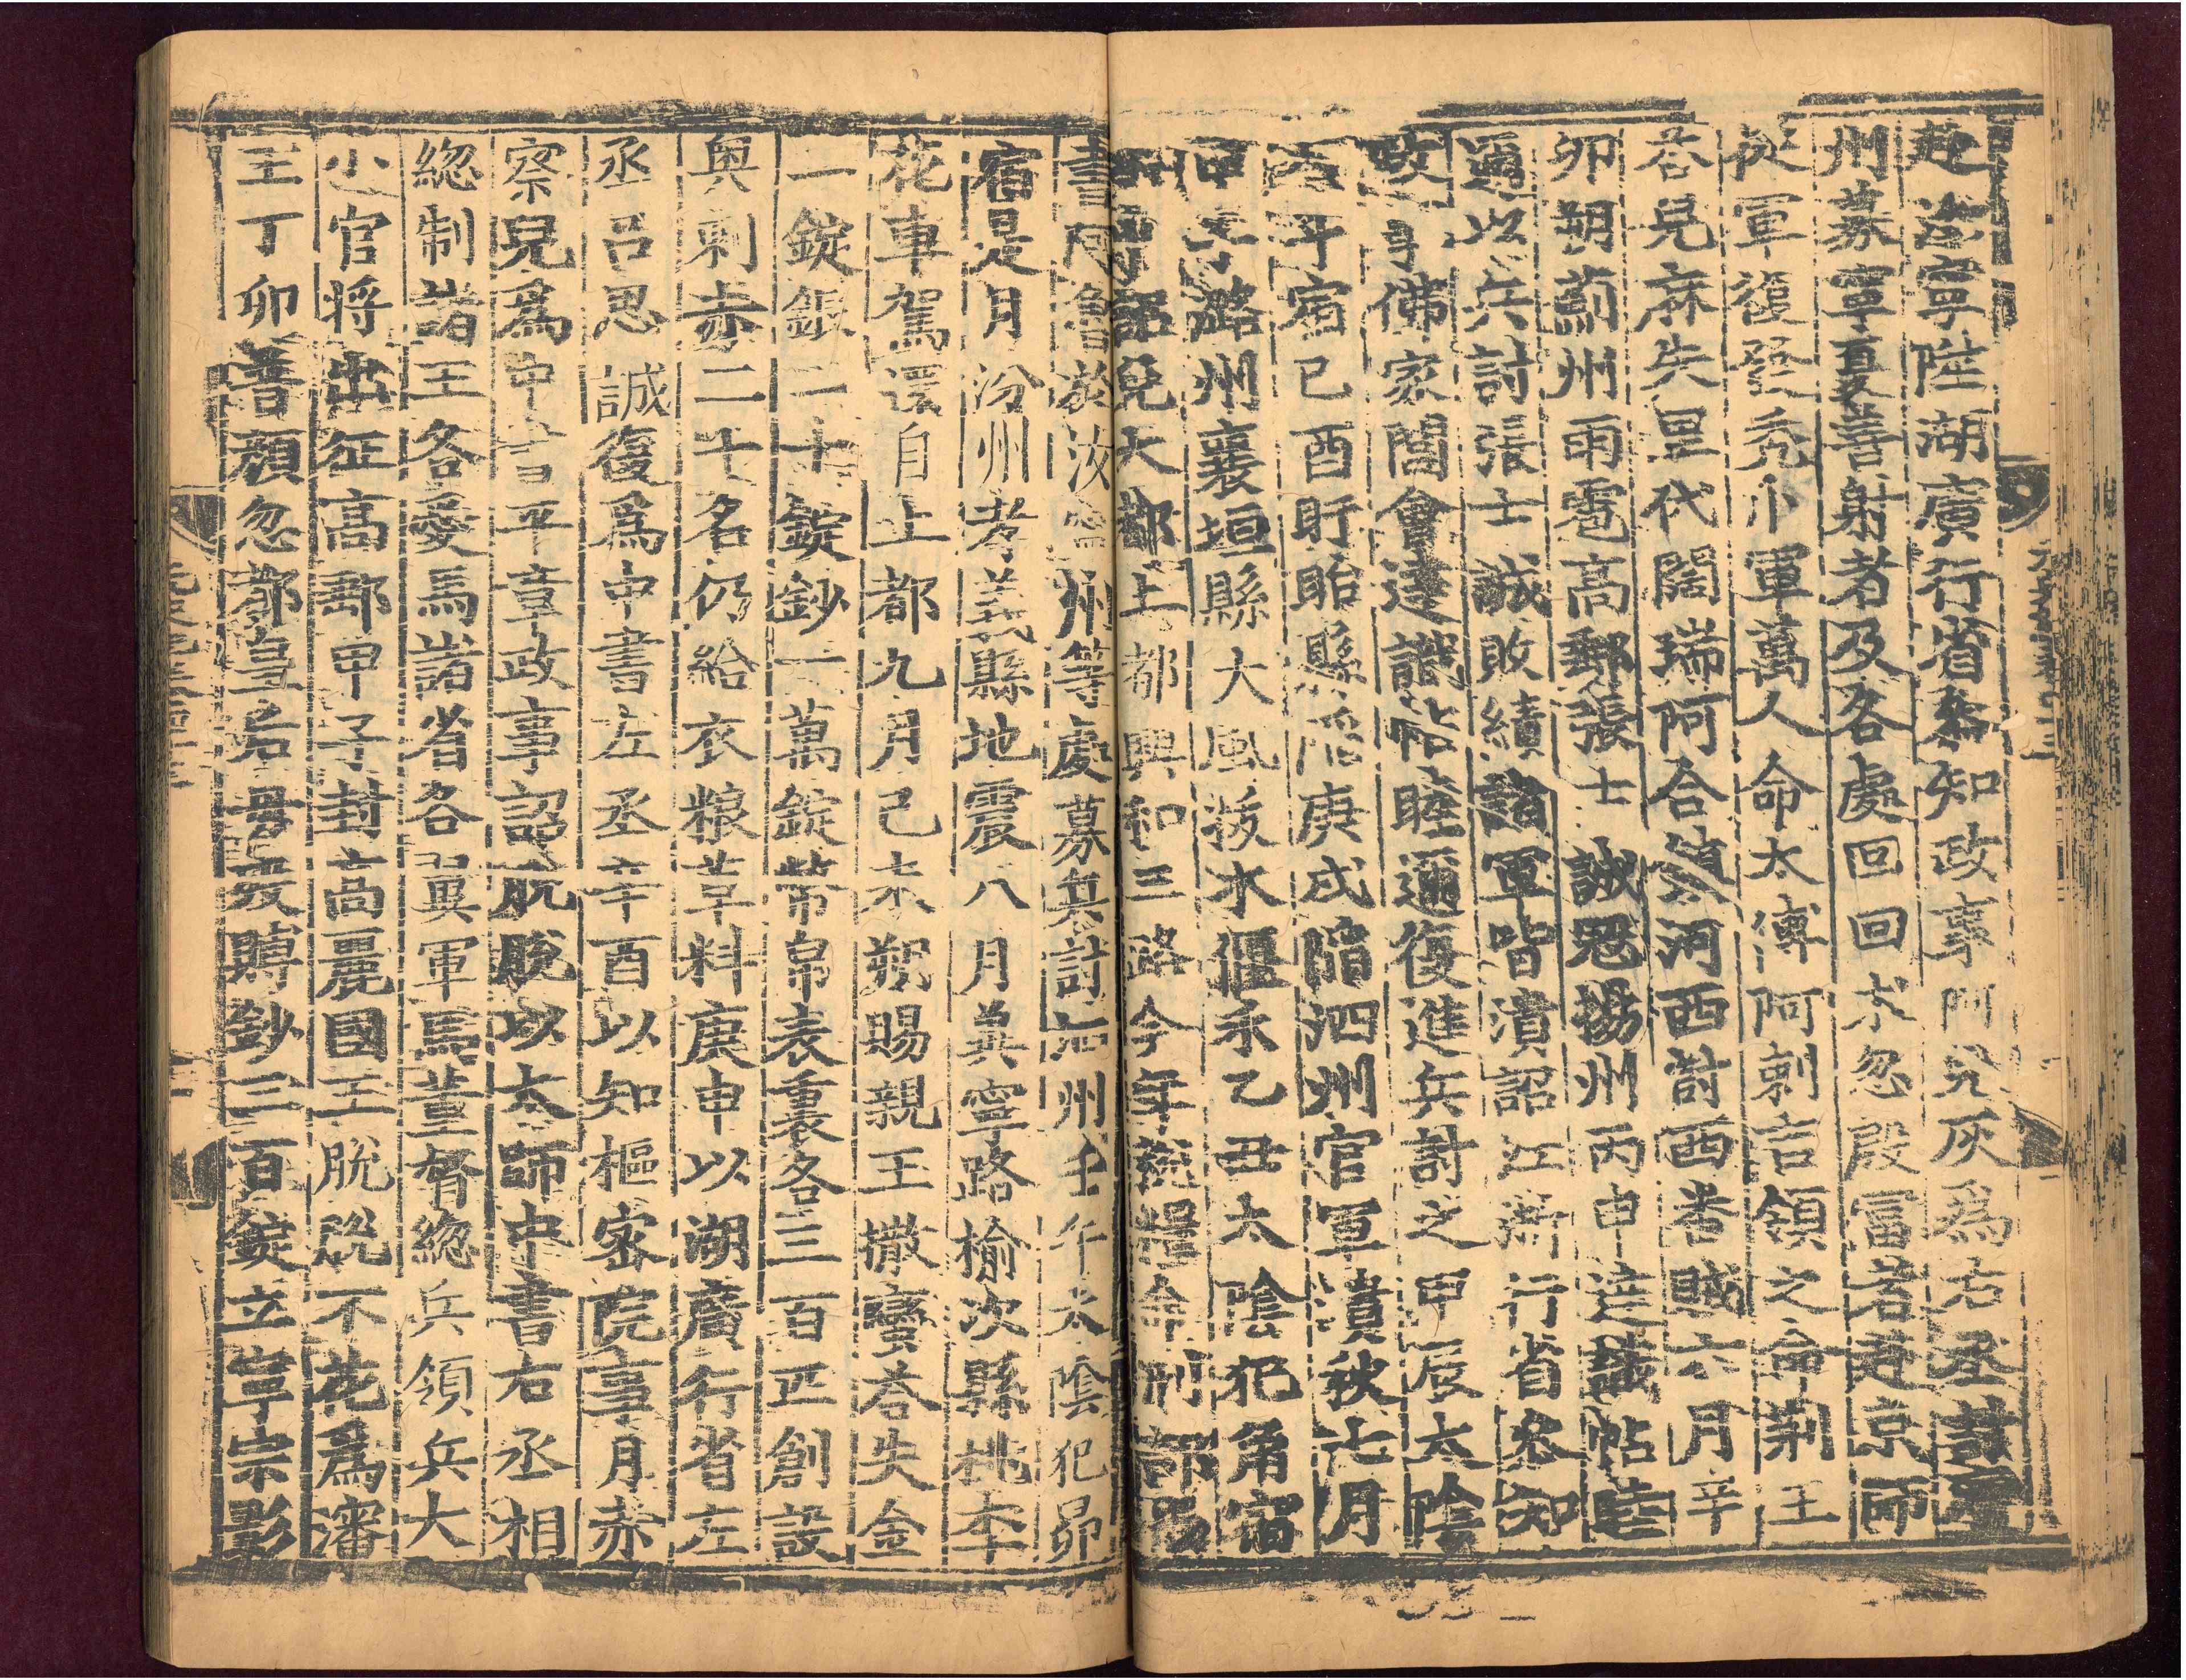 赴濟寧陞湖廣行省參知政事阿兒灰爲右丞討
州募寧夏善射者及各處回回术忽殷富者赴京師
從軍復發禿卜軍萬人命太傅阿剌吉領之命荆王
荅兒麻失里代闊瑞阿合鎮河西討西番賊六月辛
卯朔薊州雨雹高郵張士誠冦揚州丙申達識帖睦
邇以兵討張士誠敗績諸軍皆潰詔江浙行省參知
政事佛家閭會達識帖睦邇復進兵討之甲辰太陰
入斗宿己酉盱眙縣陷庚戌陷泗州官軍潰秋七月
甲子潞州襄垣縣大風拔木偃禾乙丑太陰犯角宿
詔免大都上都興和三路今年稅糧命刑部尚
書阿魯收海寧州等處募兵討泗州壬午太陰犯昴
宿是月汾州孝義縣地震八月冀寧路榆次縣桃李
花車駕還自上都九月己未朔賜親王撒蠻荅失金
一錠銀二十錠鈔一萬錠幣帛表裏各三百匹創設
奥剌赤二十名仍給衣粮草料庚申以湖廣行省左
丞吕思誠復爲中書左丞辛酉以知樞密院事月赤
察兒爲中書平章政事詔脫脫以太師中書右丞相
緫制諸王各愛馬諸省各翼軍馬董督緫兵領兵大
小官將出征高郵甲子封高麗國王脫脫不花爲瀋
王丁卯普顏忽都皇后母殁賻鈔三百錠立寧宗影